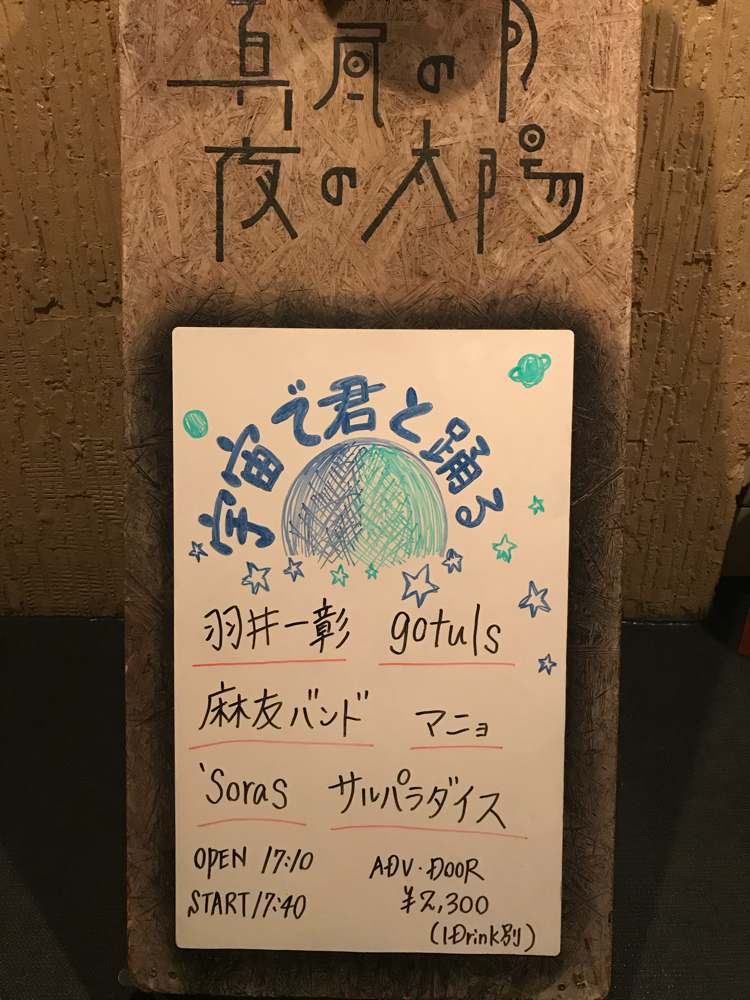 真昼の月
夜の太陽
宇宙で君と踊る
羽井一彰 gotuls
麻友バンド マニョ
'Soras サルパラダイス
OPEN 17:10 ADV・DOOR
START 17:40 ¥2,300
(1Drink別)